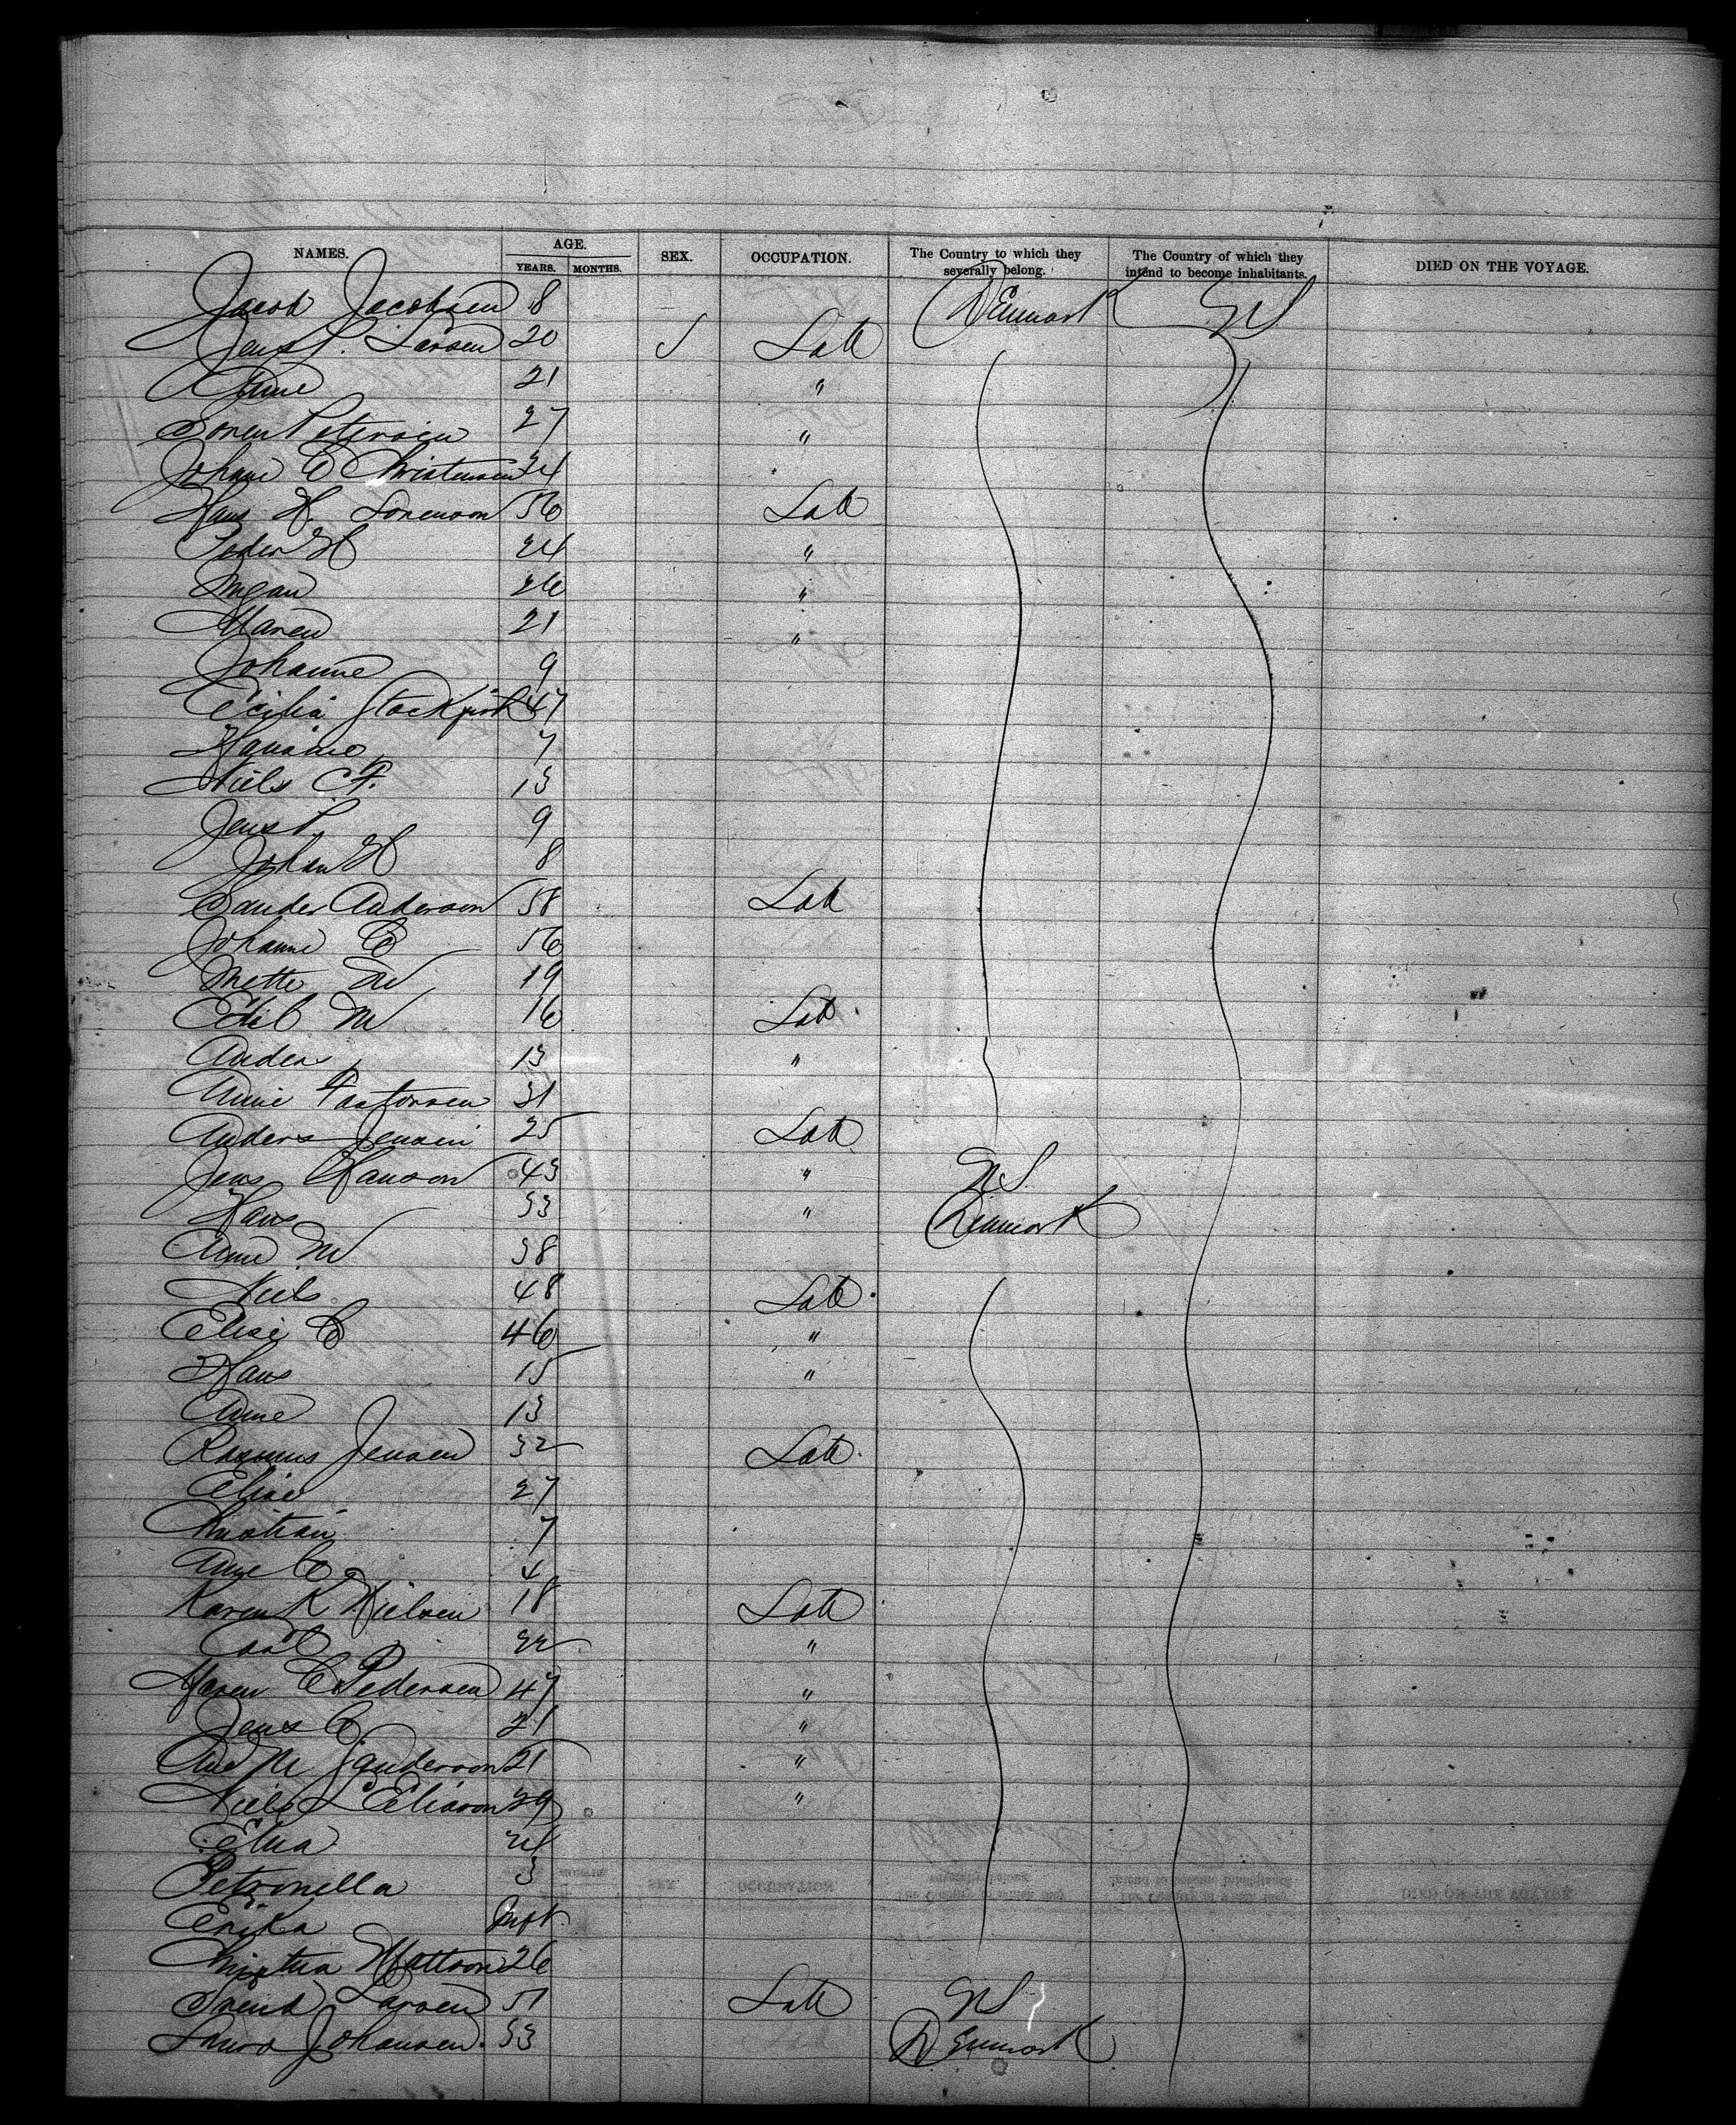 NAMES. AGE. YEARS. MONTHS. SEX. OCCUPATION. The Country to which they severally belong. The Country of which they intend to become inhabitants. DIED ON THE VOYAGE.
Jacob Jacobsen 8 Denmark US
Jens P. Larsen 20 Lab
Anne 21 "
Soren Petersen 27 "
Johane C Christensen 24
Hans H. Sorenson 56 Lab
Peder H 24 "
26 "
Maren 21 "
Johanne 9
Cecilia 47
Hansine 7
Niels C F. 13
Jens P. 9
Johan H 8
Sander Anderson 58 Lab
Johanne C 56
Mette M 19
M 16 Lab
Anders 13 "
Anne 31
Anders Jensen 25 Lab
Jens Hanson 43 " US
Hans 33 " Denmark
Anne M 38
Niels 48 Lab
Elise C 46 "
Hans 15 "
Anne 13
Rasmus Jensen 32 Lab
Elise 27
Kristian 7
Ane C 4
Karen K Nielsen 18 Lab
22 "
Maren C Pedersen 47 "
Jens C 21 "
Ane M Sanderson 25 "
Niels L Eliason 29 "
Elna 24
Petronella 3
Erika Inft
Mattson 26
Svend Larsen 51 Lab US
Laura Johansen. 33 Denmark